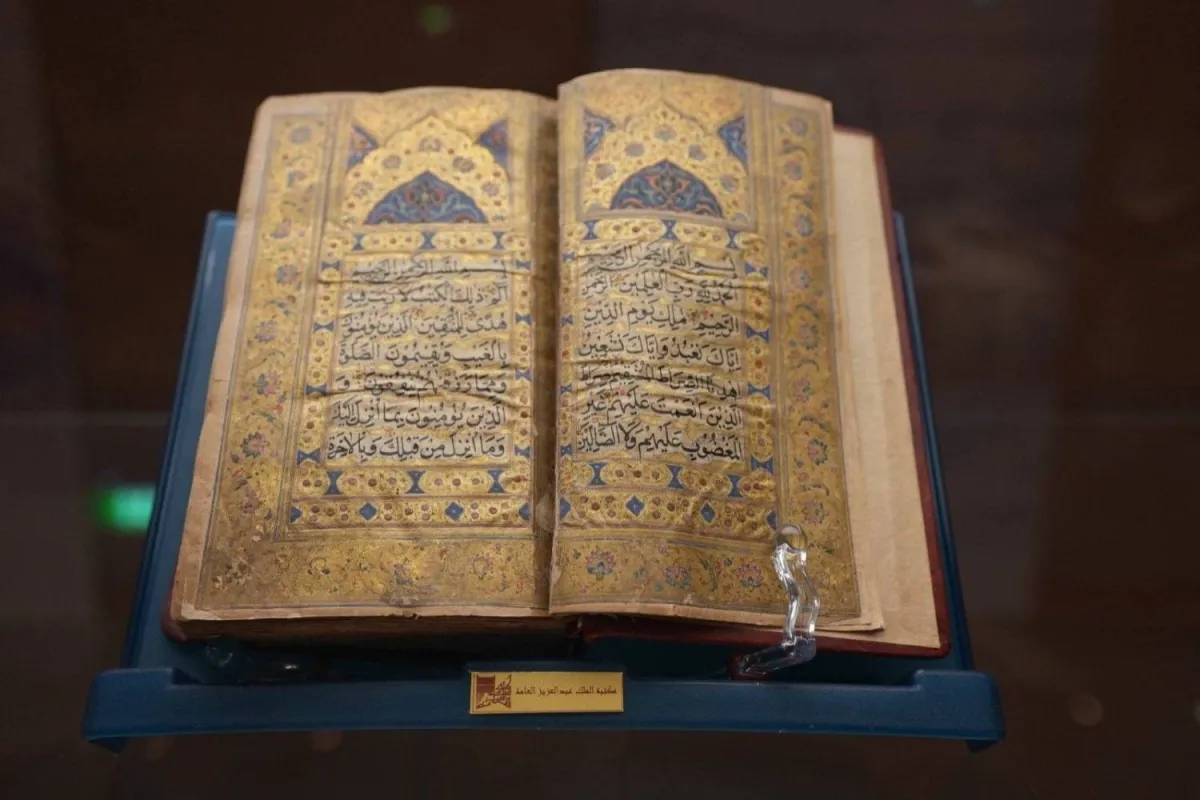 بِسْمِ اللهِ الرَّحْمٰنِ الرَّحِيْمِ
اَلْحَمْدُ لِلّٰهِ رَبِّ الْعٰلَمِيْنَ الرَّحْمٰنِ
الرَّحِيْمِ مٰلِكِ يَوْمِ الدِّيْنِ
اِيَّاكَ نَعْبُدُ وَاِيَّاكَ نَسْتَعِيْنُ
اِهْدِنَا الصِّرَاطَ الْمُسْتَقِيْمَ صِرَاطَ
الَّذِيْنَ اَنْعَمْتَ عَلَيْهِمْ غَيْرِ
الْمَغْضُوْبِ عَلَيْهِمْ وَلَا الضَّالِّيْنَ
بِسْمِ اللهِ الرَّحْمٰنِ الرَّحِيْمِ
الٓمٓ ذٰلِكَ الْكِتٰبُ لَا رَيْبَ فِيْهِ
هُدًى لِلْمُتَّقِيْنَ الَّذِيْنَ يُؤْمِنُوْنَ
بِالْغَيْبِ وَيُقِيْمُوْنَ الصَّلٰوةَ
وَمِمَّا رَزَقْنٰهُمْ يُنْفِقُوْنَ وَ
الَّذِيْنَ يُؤْمِنُوْنَ بِمَا اُنْزِلَ اِلَيْكَ
وَمَا اُنْزِلَ مِنْ قَبْلِكَ وَبِالْاٰخِرَةِ
مكتبة الملك عبدالعزيز العامة